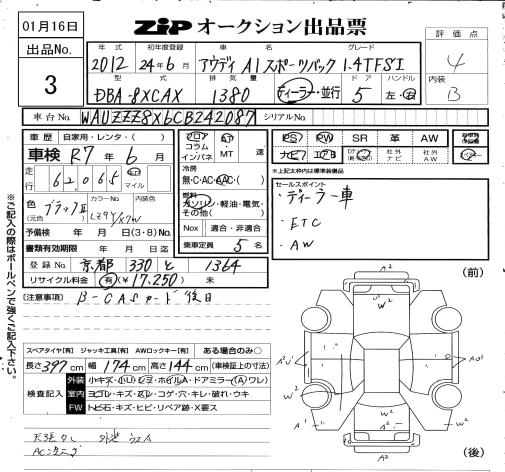 01月16日
ZiP オークション出品票
出品No.
3
年式 初年度登録 車名 グレード
2012 24年6月 アウディ A1 スポーツバック 1.4TFSI
型式 排気量 ドア ハンドル
DBA-8XCAX 1380 ディーラー・並行 5 左・右
評価点
4
内装
B
車台No. WAUZZZ8X6CB242087 シリアルNo.
車歴 自家用・レンタ・( )
車検 R7年6月
走行 62,065 km マイル
色 (元色) ブラックII カラーNo. 内装色
LZ9Y/X7W
予備検 年 月 日(3・8)No.
書類有効期限 年 月 日迄
登録No. 京都 330 と 1364
リサイクル料金 有(¥17,250) 未
フロア コラム インパネ AT・MT 速
冷房
無・C・AC・AAC・( )
燃料
ガソリン・軽油・電気・その他( )
Nox 適合・非適合
乗車定員 5名
PS PW SR 革 AW
ナビ エアB 社外ナビ 社外AW
※上記太枠内は標準装備品
セールスポイント
・ディーラー車
・ETC
・AW
(注意事項) B-CASカード後日
スペアタイヤ[有] ジャッキ工具[有] AWロックキー[有] ある場合のみ○
長さ397cm 幅174cm 高さ144cm (車検証上の寸法)
検査記入
外装 小キズ・ハリ・ヒビ・ホイルA・ドアミラー(A)ワレ)
室内 ヨゴレ・キズ・スレ・コゲ・穴・キレ・破れ・ウキ
FW トビ石・キズ・ヒビ・リペア跡・X要ス
ACモニタ
※ご記入の際はボールペンで強くご記入下さい。
(前)
A2
W2
A2U1
W
AU1
W2
W
W2
A2
(後)